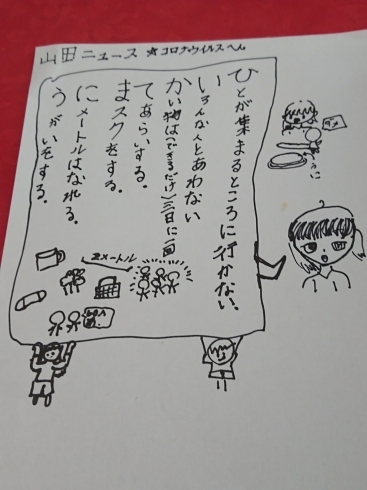 山田ニュース ★コロナウイルスへん
ひとが集まるところに行かない。
いろんな人とあわない
かい物は(できるだけ)三日に一回
てあらいする。
マスクをする。
にメートルはなれる。
うがいをする。
2メートル